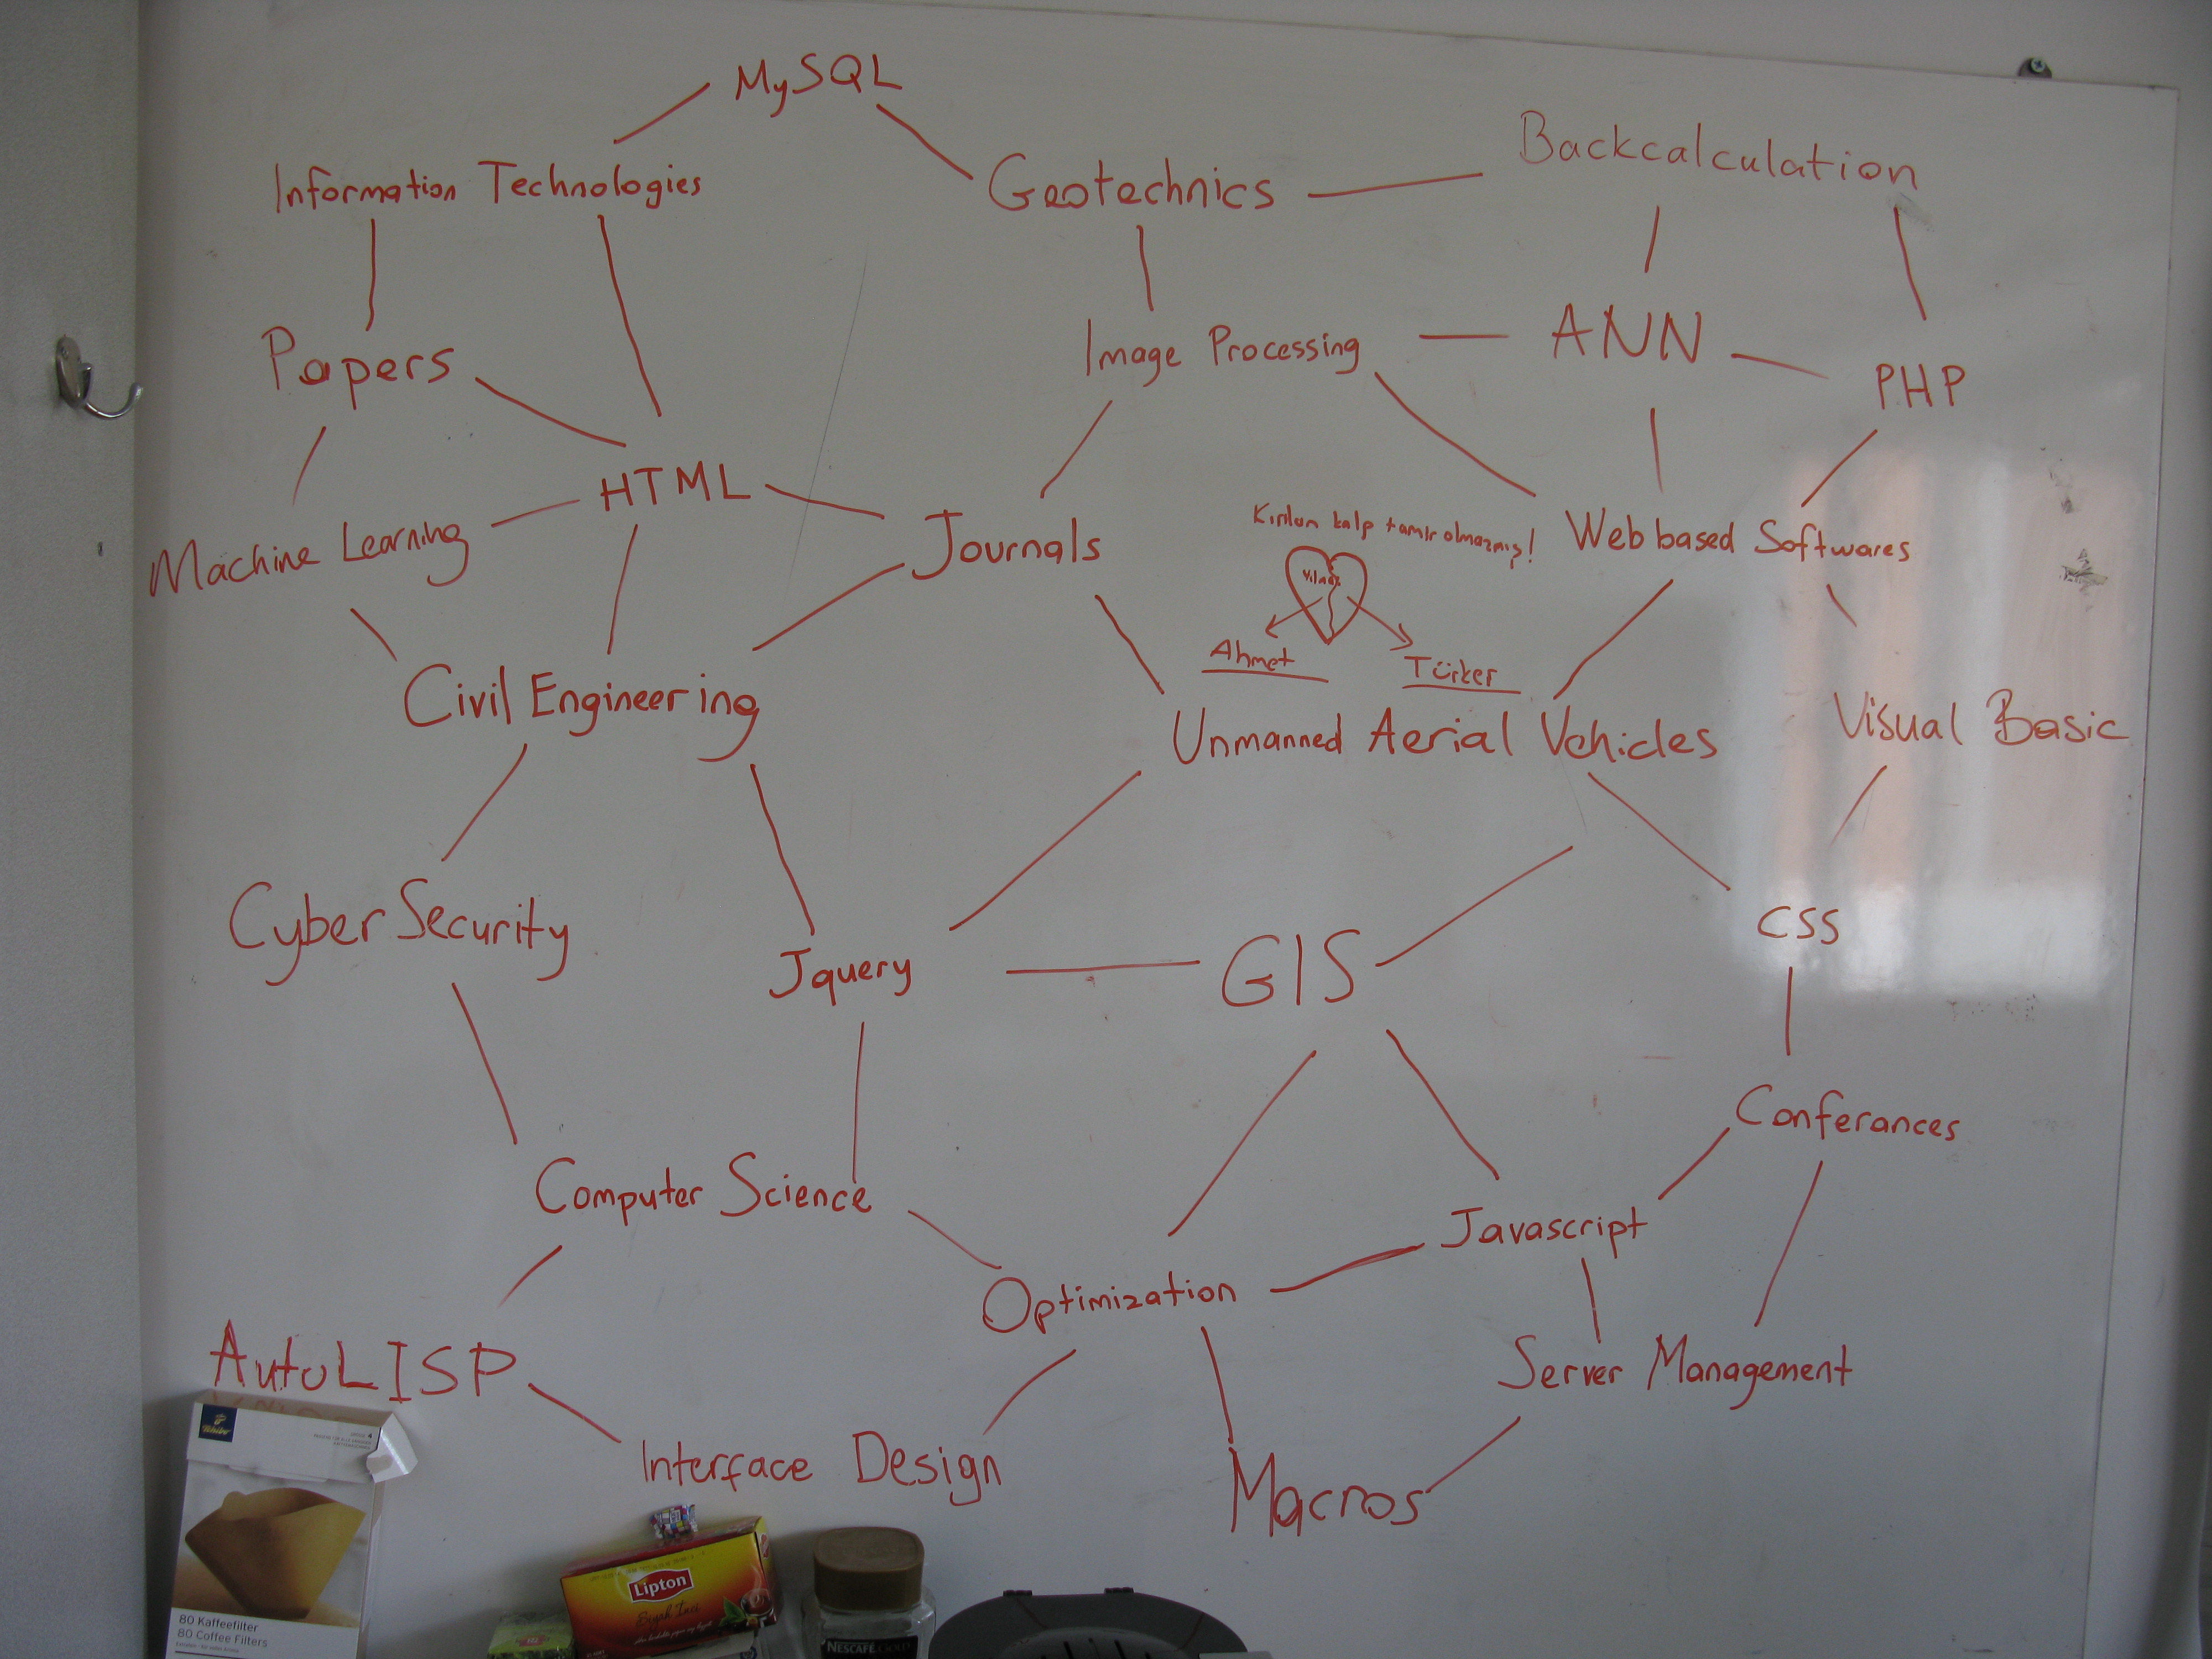 MySQL
Information Technologies
Geotechnics
Backcalculation
Papers
Image Processing
ANN
PHP
HTML
Machine Learning
Journals
Kırılan kalp tamir olmazmış!
Web based Softwares
Ahmet
Türker
Civil Engineering
Unmanned Aerial Vehicles
Visual Basic
Cyber Security
Jquery
GIS
CSS
Conferances
Computer Science
Javascript
Optimization
AutoLISP
Server Management
Interface Design
Macros
Tchibo
80 Kaffeefilter
80 Coffee Filters
Lipton
NESCAFÉ GOLD